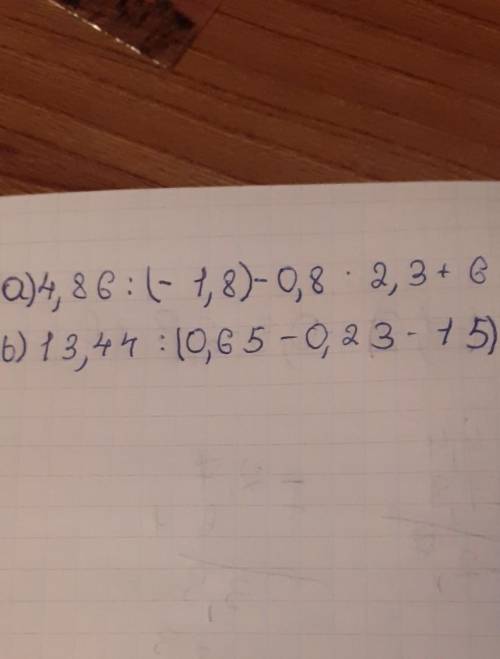 а) 4,86 : (- 1,8) - 0,8 · 2,3 + 6
b) 13,44 : (0,65 - 0,23 - 15)